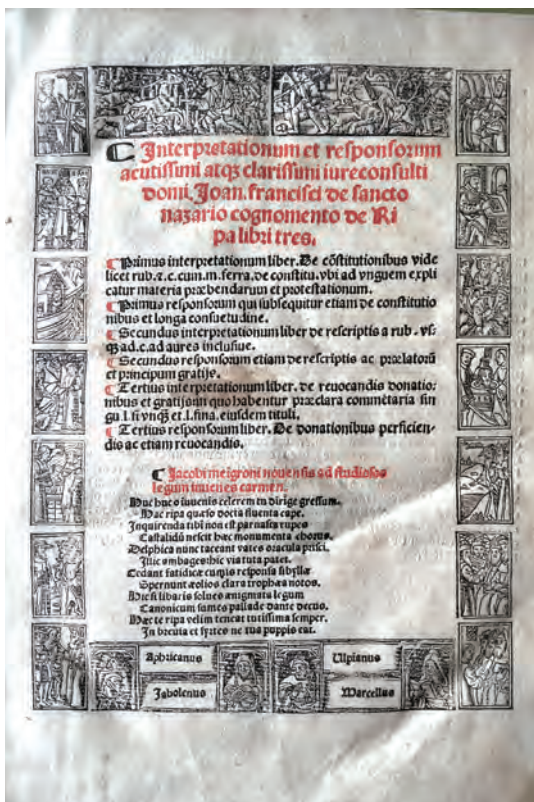 Interpretationum et responsorum
acutissimi atq; clarissimi iureconsulti
domi. Joan. francisci de sancto
nazario cognomento de Ri
pa libri tres.
Primus interpretationum liber. De cōstitutionibus vide
licet rub. ⁊. c. cum. m. ferra. de constitu. vbi ad vnguem expli
catur materia præbendarum et protestationum.
Primus responsorum qui subsequitur etiam de constitutio
nibus et longa consuetudine.
Secundus interpretationum liber de rescriptis a rub. vs
q̃ ad. c. ad aures inclusiue.
Secundus responsorum etiam de rescriptis ac prælatorū
et principum gratijs.
Tertius interpretationum liber. de reuocandis donatio
nibus et gratijs in quo habentur præclara commētaria sin
gu. l. si vnq̃ et. l. fina. eiusdem tituli.
Tertius responsorum liber. De donationibus perficien
dis ac etiam reuocandis.
Jacobi meigroni nouensis ad studiosos
legum iuuenes carmen.
Huc huc o iuuenis celerem in dirige gressum.
Hac ripa quæso docta fluenta cape.
Inquirenda tibi non est parnasea rupes
Castalidū nescit hæc monumenta chorus.
Delphica nunc taceant vates oracula prisci.
Illic ambages hic via tuta patet.
Cedant fatidicæ cumis responsa sibyllæ
Spernunt æolios clara trophæa notos.
His si libaris solues ænigmata legum
Canonicum sumes pallade dante decus.
Hæc te ripa velim teneat tutissima semper.
In breuia et syrtes ne tua puppis eat.
Aphricanus
Ulpianus
Jabolenus
Marcellus